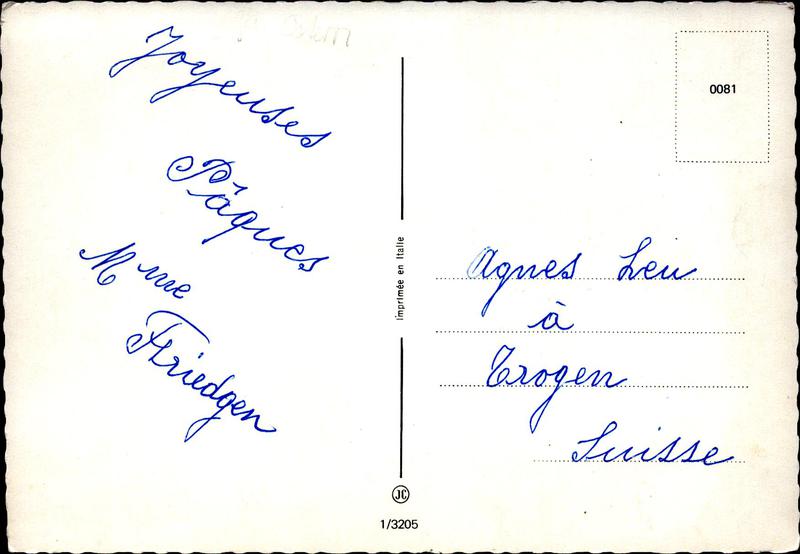 Joyeuses
Pâques
Mme
Friedgen
0081
Imprimée en Italie
Agnes Leu
à
Trogen
Suisse
JC
1/3205